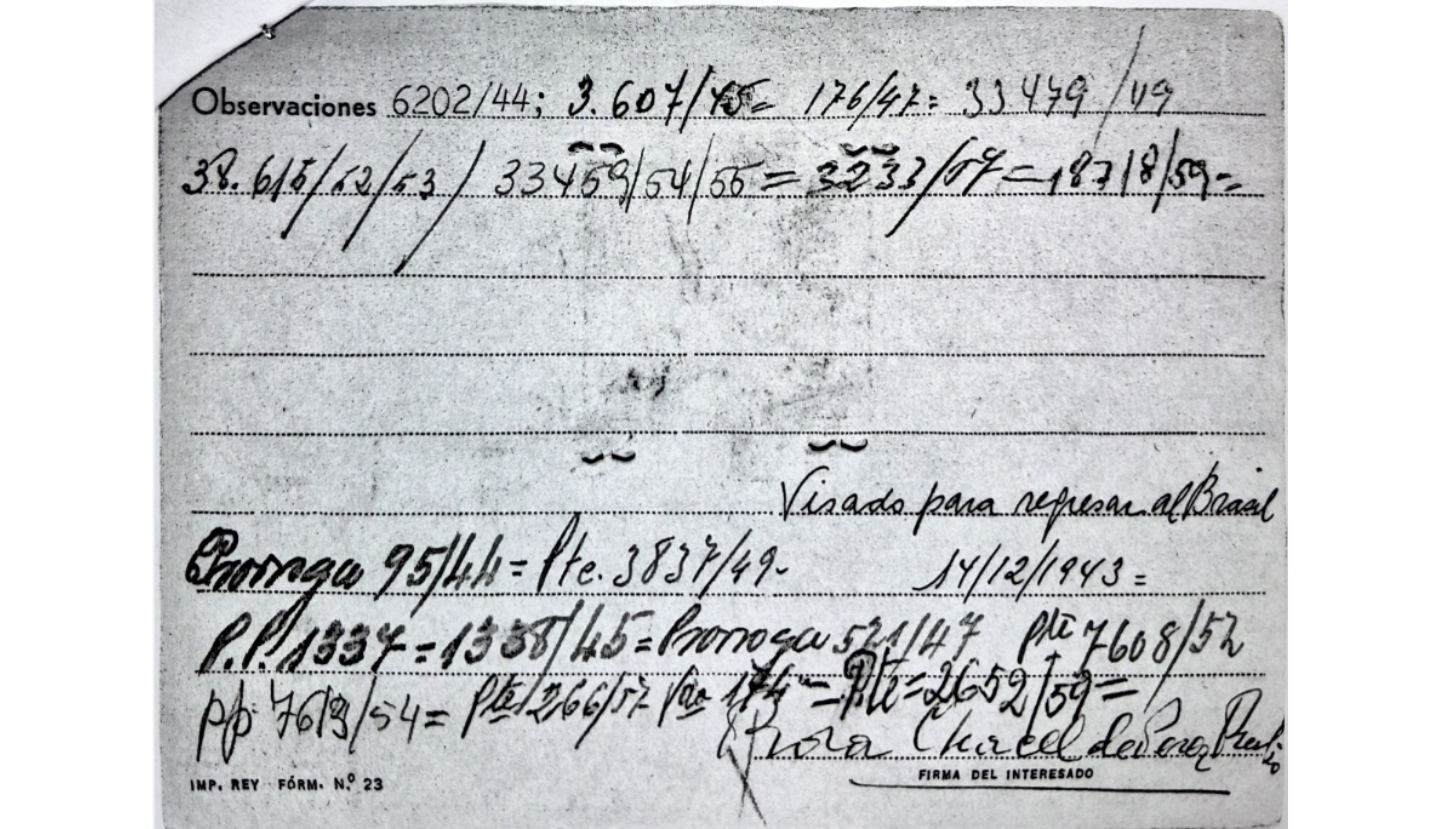 Observaciones 6202/44; 3.607/45= 176/47= 33479/49
38.615/52/53/ 33459/54/55= 3233/57=18718/59-=
Visado para regresar al Brasil
Prorroga 95/44= Pte. 3837/49- 14/12/1943=
P.P. 1337=1338/45= Prorroga 521/47 Pte 7608/52
pp. 7613/54= Pte 1266/57 174 = Pte=2652/59=
Rosa Chacel de Perez Rubio
IMP. REY FÓRM. N.º 23 FIRMA DEL INTERESADO